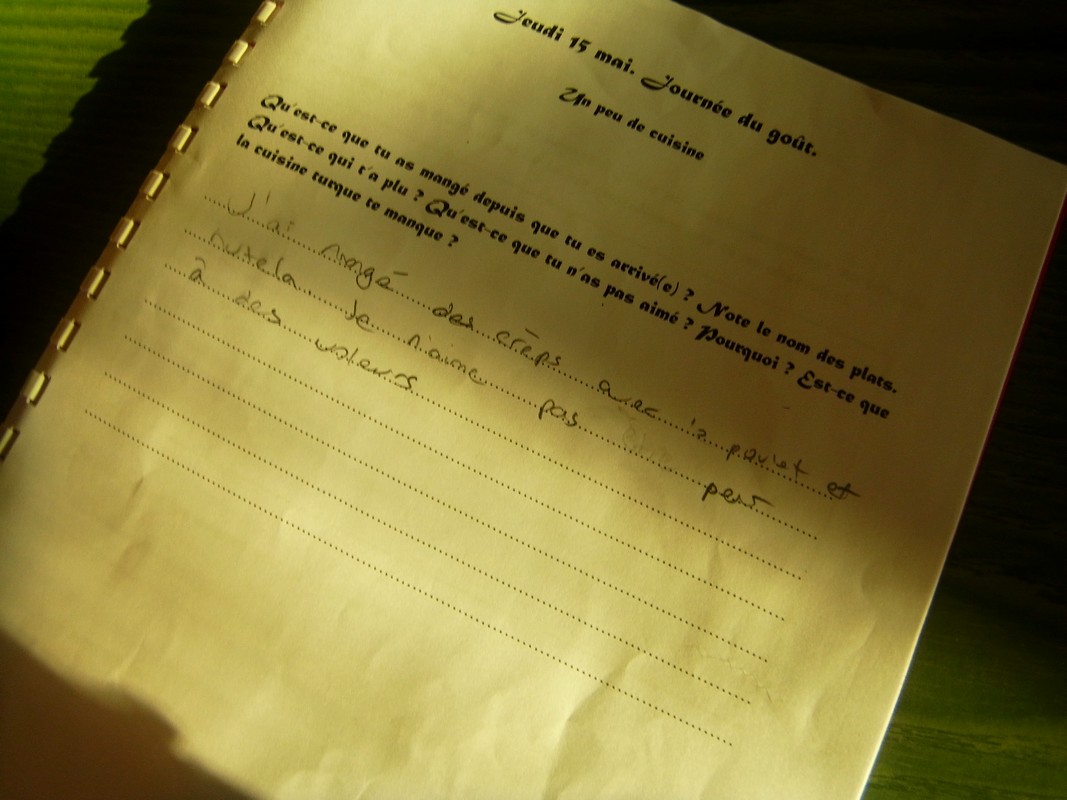 Jeudi 15 mai. Journée du goût.
Un peu de cuisine
Qu'est-ce que tu as mangé depuis que tu es arrivé(e) ? Note le nom des plats.
Qu'est-ce qui t'a plu ? Qu'est-ce que tu n'as pas aimé ? Pourquoi ? Est-ce que
la cuisine turque te manque ?
J'ai mangé des crêps avec la paulet et
nutela Je n'aime pas
à des